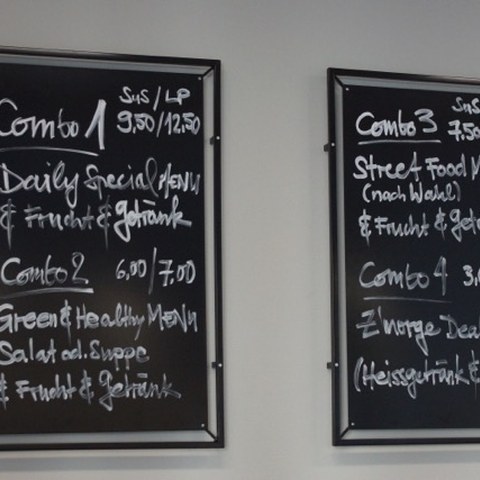 SuS/LP
Combo 1 9,50/12,50
Daily Special MENU
& Frucht & getränk
Combo 2 6,00/7,00
Green & Healthy MENU
Salat od. Suppe
& Frucht & getränk
SuS
Combo 3 7,50
Street Food M
(nach Wahl)
& Frucht & Get
Combo 4 3,
Z'norge Dea
(Heissgetränk &